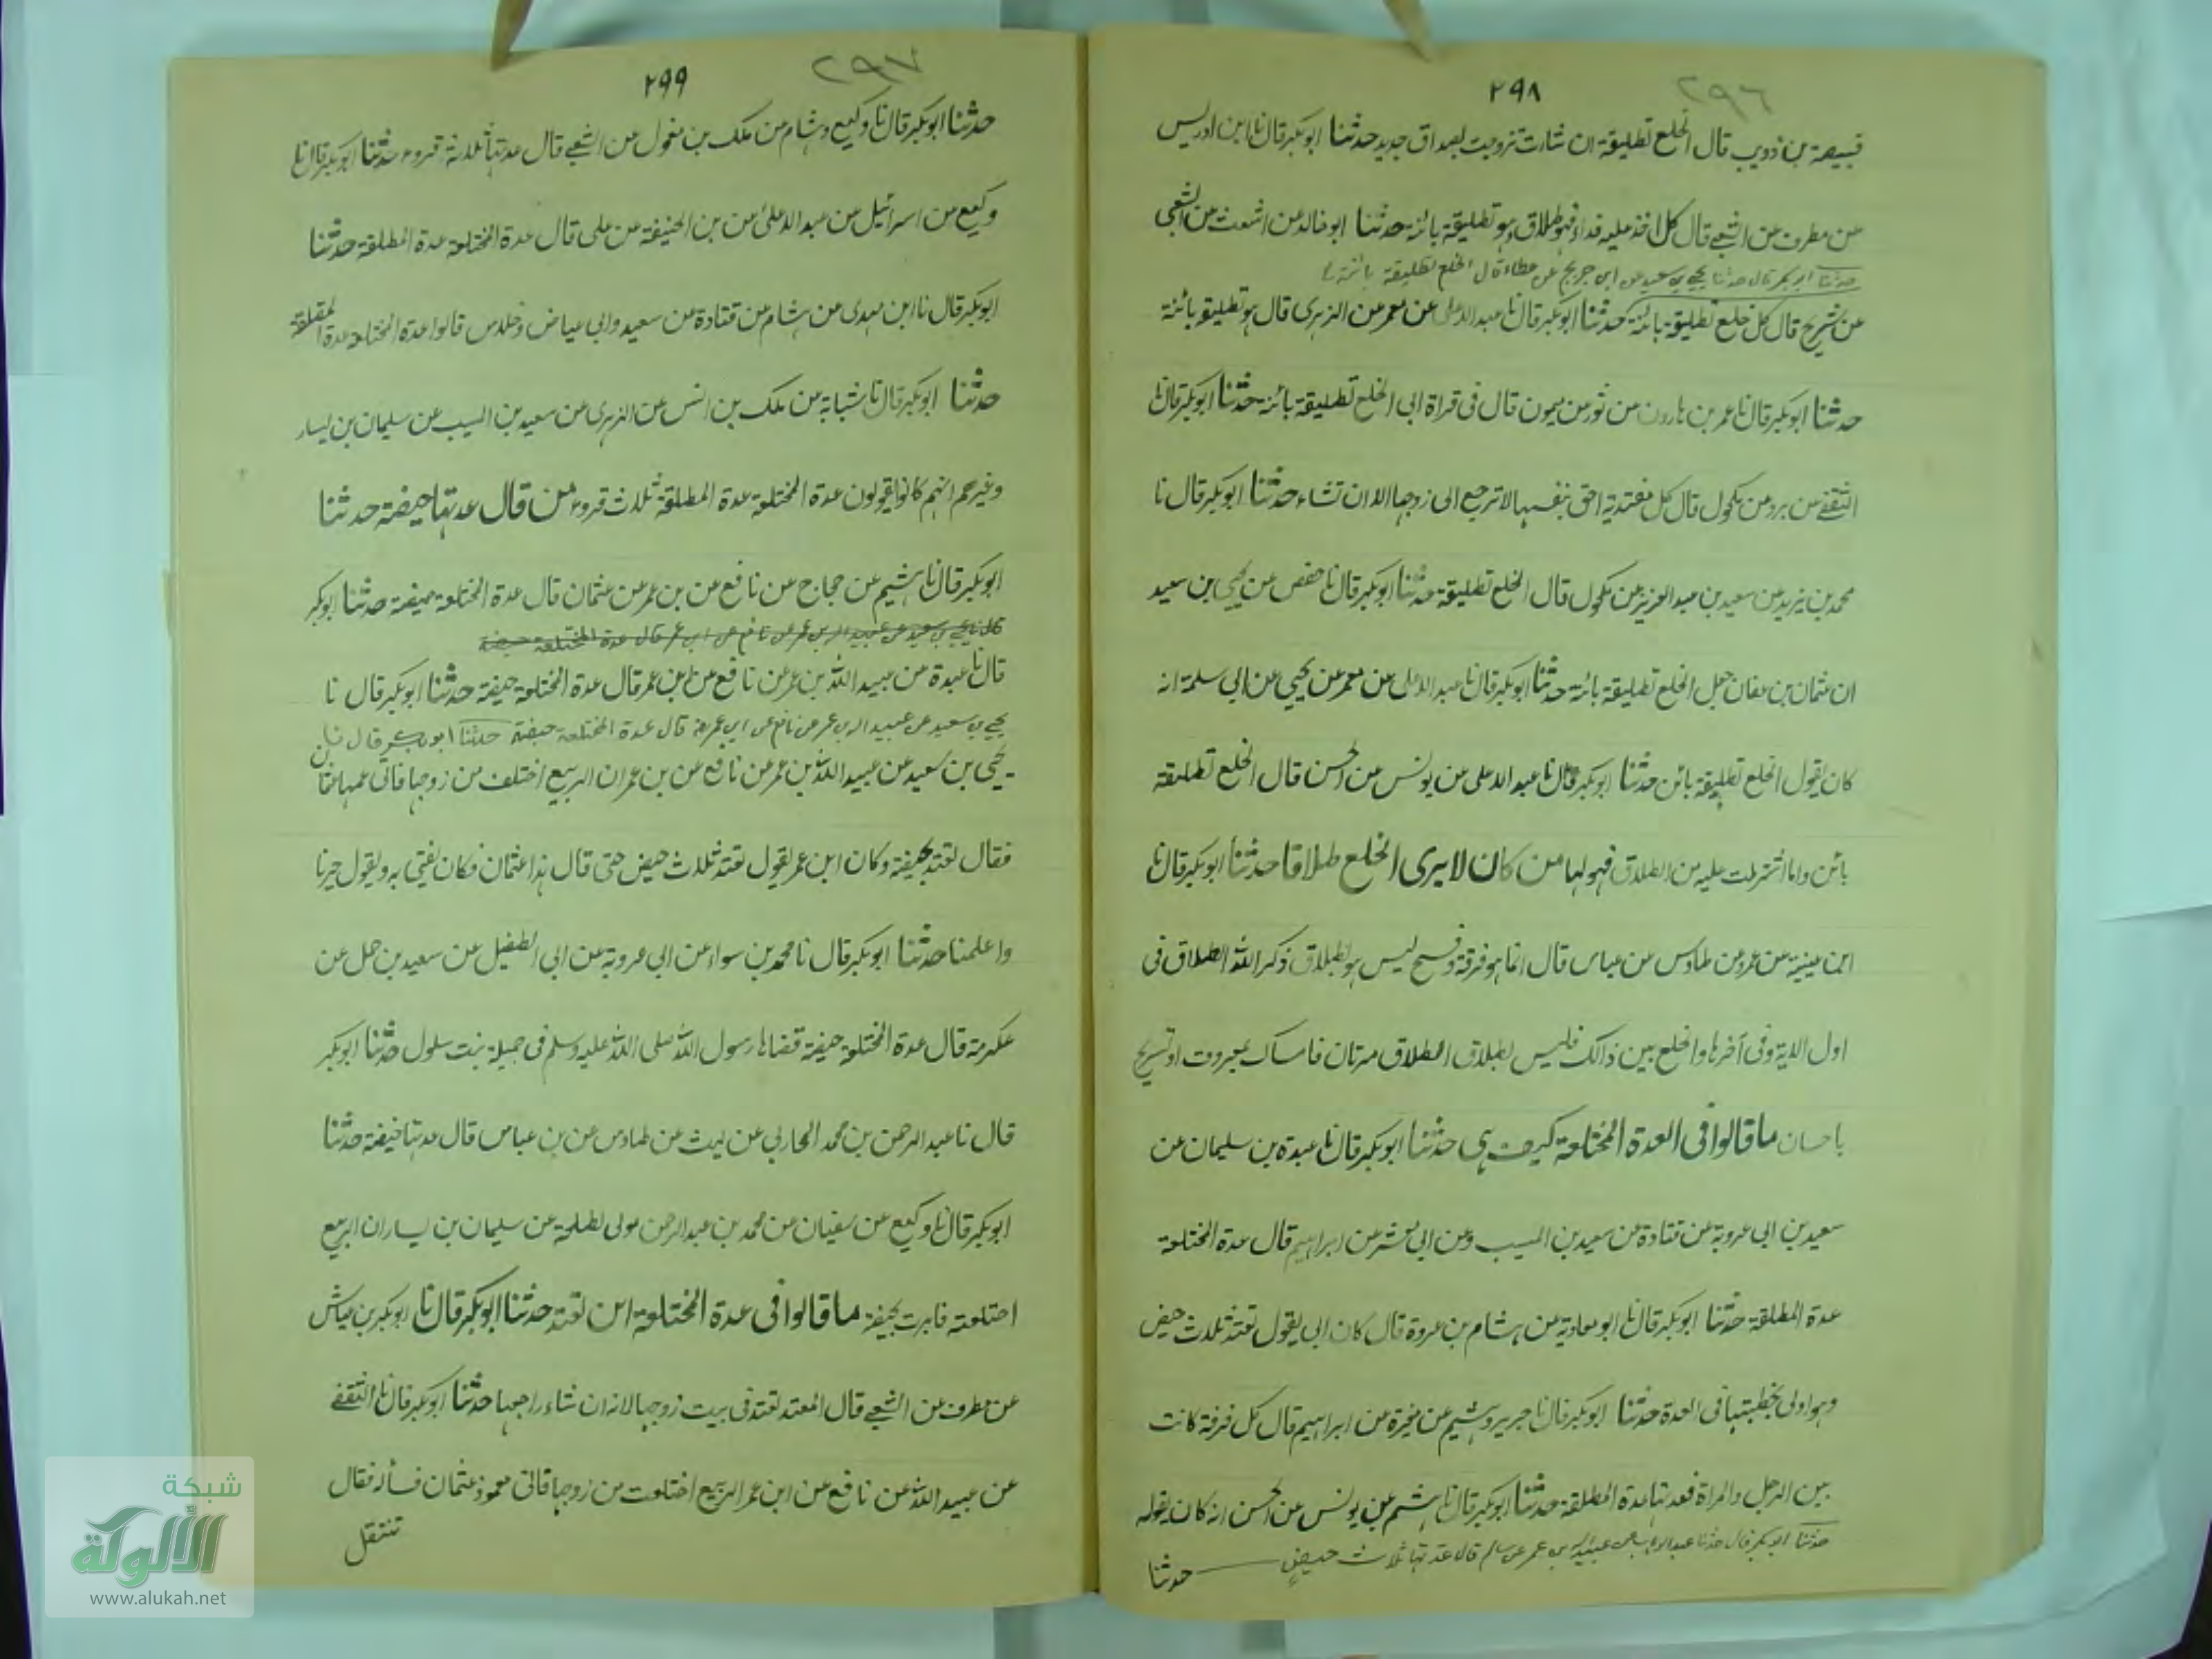 ٢٩٨ ٢٩٦
قبيصة بن ذويب قال الخلع تطليقة ان شارت تزوجت بصداق جديد حدثنا ابوبكر قال نا ابن ادريس
عن مطرف عن الشعبي قال كل اخذ عليه فداء فهو طلاق وهو تطليقة بائنة حدثنا ابو خالد عن اشعث عن الشعبي
حدثنا ابو بكر قال حدثنا يحيى بن سعيد عن ابن جريج عن عطاء قال الخلع تطليقة بائنة
عن شريح قال كل خلع تطليقة بائنة حدثنا ابوبكر قال نا عبد الاعلى عن معمر عن الزهرى قال هو تطليقو بائنة
حدثنا ابوبكر قال نا عمر بن هارون عن ثور عن ميمون قال فى قراة ابى الخلع تطليقة بائنة حدثنا ابوبكر قال نا
الثقفے عن برد عن مكحول قال كل مفتدية احق بنفسها لا ترجع الى زوجها الا ان تشاء حدثنا ابوبكر قال نا
محمد بن يزيد عن سعيد بن عبد العزيز عن مكحول قال الخلع تطليقة حدثنا ابوبكر قال نا حفص عن يحيى بن سعيد
ان عثمان بن عفان جعل الخلع تطليقة بائنة حدثنا ابوبكر قال نا عبد الاعلى عن معمر عن يحيى عن ابى سلمة انه
كان يقول الخلع تطليقة بائن حدثنا ابوبكر قال نا عبد الاعلى عن يونس عن الحسن قال الخلع تطليقة
بائن واما اشترطت عليه من الطلاق فهو لها من كان لا يرى الخلع طلاقا حدثنا ابوبكر قال نا
ابن عيينة عن عمرو عن طاوس عن عباس قال انما هو فرقة وفسخ ليس هو بطلاق ذكر الله الطلاق فى
اول الاية وفى آخرها والخلع بين ذالك فليس بطلاق الطلاق مرتان فامساك بمعروف او تسريح
باحسان ما قالوا فى العدة المختلعة كيف هى حدثنا ابوبكر قال نا عبدة بن سليمان عن
سعيد بن ابى عروبة عن قتادة عن سعيد بن المسيب وعن ابى معشر عن ابراهيم قال عدة المختلعة
عدة المطلقة حدثنا ابوبكر قال نا ابو معاوية عن هشام بن عروة قال كان ابى يقول تعتد ثلاث حيض
وهو اولى بخطبتها فى العدة حدثنا ابوبكر قال نا جرير وهشيم عن مغيرة عن ابراهيم قال كل فرقة كانت
بين الرجل والمراة فعدتها عدة المطلقة حدثنا ابوبكر قال نا هشيم عن يونس عن الحسن انه كان يقوله
حدثنا ابو بكر قال حدثنا عبد الوهاب عن عبيد الله بن عمر عن سالم قال عدتها ثلاث حيض
حدثنا
٢٩٩ ٢٩٧
حدثنا ابوبكر قال نا وكيع وهشام عن ملك بن مغول عن الشعبے قال عدتها ثلاثة قروء حدثنا ابوبكر قال نا
وكيع عن اسرائيل عن عبد الاعلى عن بن الحنيفة عن على قال عدة المختلعة عدة المطلقة حدثنا
ابوبكر قال نا ابن مهدى عن هشام عن قتادة عن سعيد وابى عياض وخلاس قالوا عدة المختلعة عدة المطلقة
حدثنا ابوبكر قال نا شبابة عن ملك بن انس عن الزهرى عن سعيد بن المسيب عن سليمان بن يسار
وغيرهم انهم كانوا يقولون عدة المختلعة عدة المطلقة ثلاث قروء من قال عدتها حيضة حدثنا
ابوبكر قال نا هشيم عن حجاج عن نافع عن بن عمر عن عثمان قال عدة المختلعة حيضة حدثنا ابوبكر
قال نا يحيى بن سعيد عن عبيد الله بن عمر عن نافع عن ابن عمر قال عدة المختلعة حيضة
قال نا عبدة عن عبيد الله بن عمر عن نافع عن ابن عمر قال عدة المختلعة حيضة حدثنا ابوبكر قال نا
يحيى بن سعيد عن عبيد الله بن عمر عن نافع عن ابن عمر قال عدة المختلعة حيضة حدثنا ابو بكر قال نا
يحيى بن سعيد عن عبيد الله بن عمر عن نافع عن بن عمر ان الربيع اختلعت من زوجها فاتى عمها عثمان
فقال تعتد بحيضة وكان ابن عمر يقول تعتد ثلاث حيض حتى قال هذا عثمان فكان يفتى به ويقول خيرنا
واعلمنا حدثنا ابوبكر قال نا محمد بن سواء عن ابى عروبة عن ابى الطفيل عن سعيد بن حمل عن
عكرمة قال عدة المختلعة حيضة قضاها رسول الله صلى الله عليه وسلم فى جميلة بنت سلول حدثنا ابوبكر
قال نا عبد الرحمن بن محمد المحاربى عن ليث عن طاوس عن بن عباس قال عدتها حيضة حدثنا
ابوبكر قال نا وكيع عن سفيان عن محمد بن عبد الرحمن مولى لطلحة عن سليمان بن يسار ان الربيع
اختلعت فامرت بحيضة ما قالوا فى عدة المختلعة اين تعتد حدثنا ابوبكر قال نا ابوبكر بن عياش
عن مطرف عن الشعبے قال المعتد تعتد فى بيت زوجها لانه ان شاء راجعها حدثنا ابوبكر قال نا الثقفے
عن عبيد الله عن نافع عن ابن عمر الربيع اختلعت من زوجها فاتى معوذ عثمان فسأله فقال
تنتقل
شبكة
الألوكة
www.alukah.net